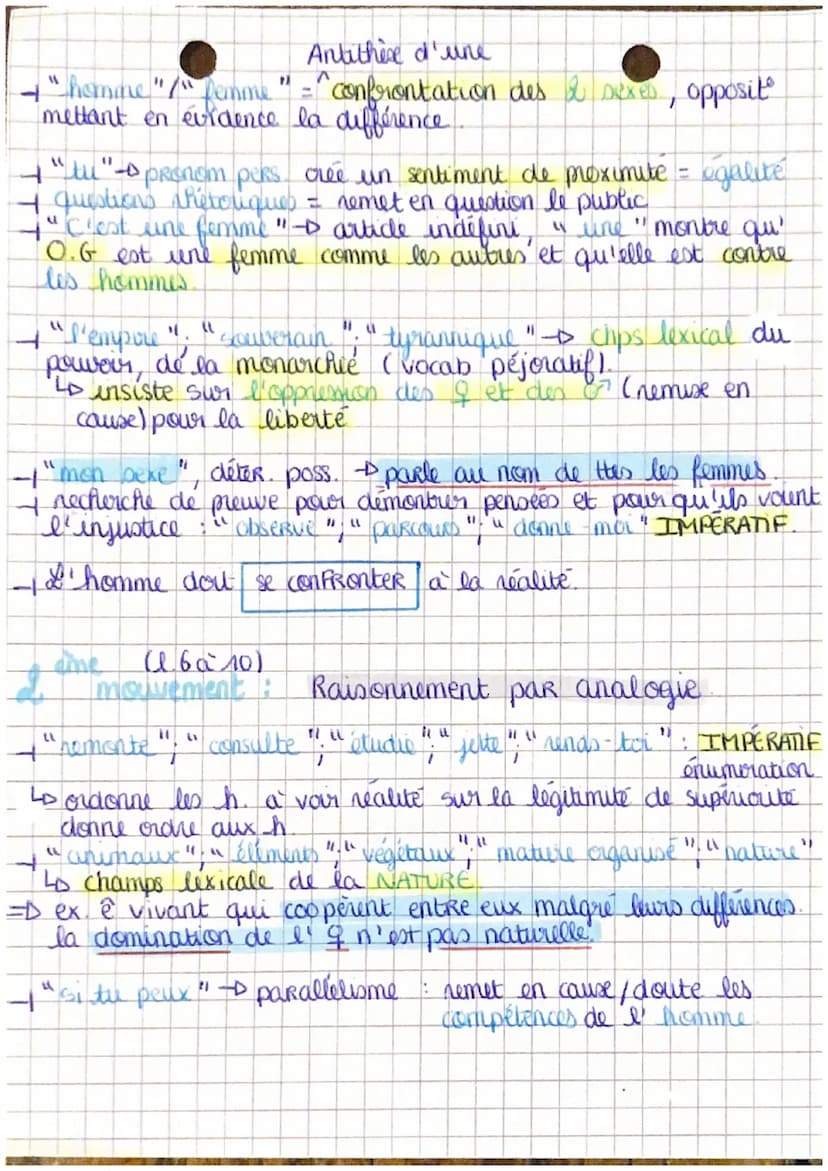 Antithèse d'une
→ "homme"/"femme" = confrontation des 2 sexes, opposit°
mettant en évidence la différence.
→ "tu" → pronom pers. crée un sentiment de proximité = égalité
→ questions rhétoriques = remet en question le public
→ "C'est une femme" → article indéfini, "une" montre qu'
O.G est une femme comme les autres et qu'elle est contre
les hommes.
→ "l'empire"; "souverain"; "tyrannique" → chps lexical du
pouvoir, de la monarchie (vocab péjoratif).
↳ insiste sur l'oppression des ♀ et des ♂ (remise en
cause) pour la liberté
→ "mon sexe", déter. poss. → parle au nom de ttes les femmes.
→ recherche de preuve pour démontrer pensées et pour qu'ils voient
l'injustice : "observe"; "parcours"; "donne-moi" IMPÉRATIF.
→ L'homme doit se confronter à la réalité.
2ème mouvement : (l.6 à 10) Raisonnement par analogie.
→ "remonte"; "consulte"; "étudie"; "jette"; "rends-toi" : IMPÉRATIF
énumération
↳ ordonne les h. à voir réalité sur la légitimité de supériorité
donne ordre aux h.
→ "animaux"; "éléments"; "végétaux"; "matière organisé"; "nature"
↳ champs lexicale de la NATURE.
⇒ ex. ê vivant qui coopèrent entre eux malgré leurs différences.
la domination de l'♀ n'est pas naturelle.
→ "si tu peux" → parallélisme : remet en cause/doute les
compétences de l'homme.